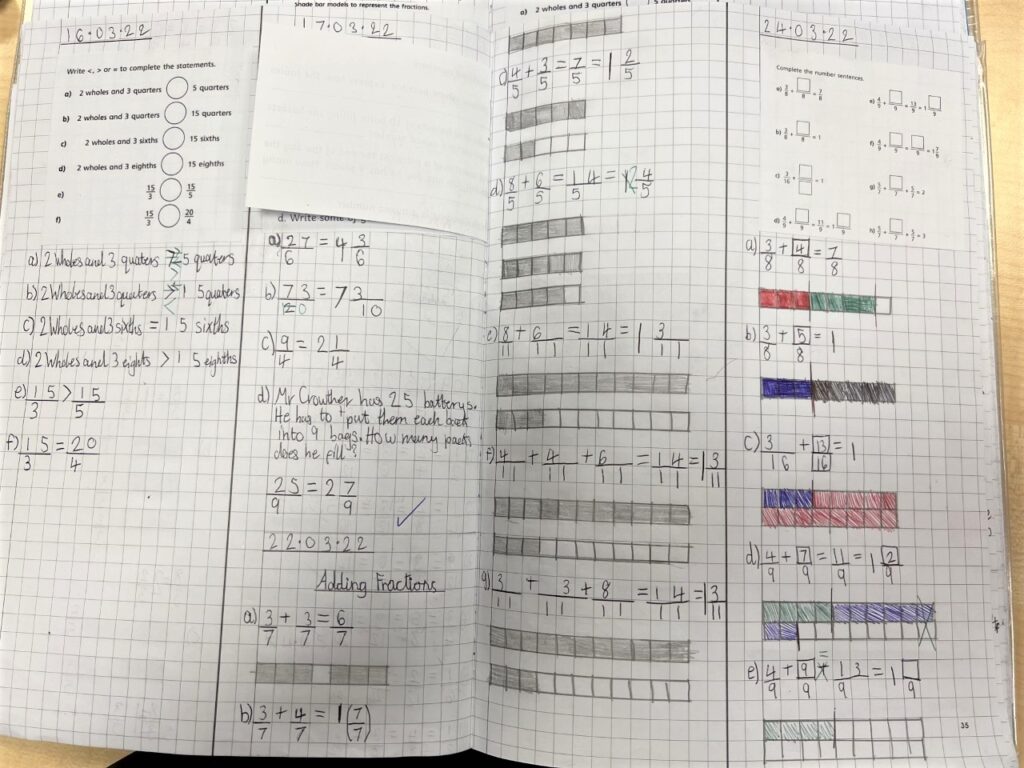 16.03.22
Write <, > or = to complete the statements.
a) 2 wholes and 3 quarters 5 quarters
b) 2 wholes and 3 quarters 15 quarters
c) 2 wholes and 3 sixths 15 sixths
d) 2 wholes and 3 eighths 15 eighths
e) 15/3 15/5
f) 15/3 20/4
a) 2 Wholes and 3 quaters > 5 quaters
b) 2 Wholes and 3 quaters < 15 quaters
c) 2 Wholes and 3 sixths = 15 sixths
d) 2 Wholes and 3 eights > 15 eighths
e) 15/3 > 15/5
f) 15/3 = 20/4
shade bar models to represent the fractions.
17.03.22
d. Write some
a) 27/6 = 4 3/6
b) 73/10 = 7 3/10
c) 9/4 = 2 1/4
d) Mr Crowther has 25 batterys.
He has to put them each
into 9 bags. How many packs
does he fill?
25/9 = 2 7/9
22.03.22
Adding Fractions
a) 3/7 + 3/7 = 6/7
b) 3/7 + 4/7 = 1 (7/7)
a) 2 wholes and 3 quarters
c) 4/5 + 3/5 = 7/5 = 1 2/5
d) 8/5 + 6/5 = 14/5 = 2 4/5
e) 8/11 + 6/11 = 14/11 = 1 3/11
f) 4/11 + 4/11 + 6/11 = 14/11 = 1 3/11
g) 3/11 + 3/11 + 8/11 = 14/11 = 1 3/11
24.03.22
Complete the number sentences.
a) 3/8 + □/8 = 7/8
b) 3/8 + □/8 = 1
c) 3/16 + □/□ = 1
d) 4/9 + □/9 = 11/9 = 1 □/9
e) 4/9 + □/9 = 13/9 = 1 □/9
a) 3/8 + 4/8 = 7/8
b) 3/8 + 5/8 = 1
c) 3/16 + 13/16 = 1
d) 4/9 + 7/9 = 11/9 = 1 2/9
e) 4/9 + 9/9 = 13/9 = 1 □/9
35